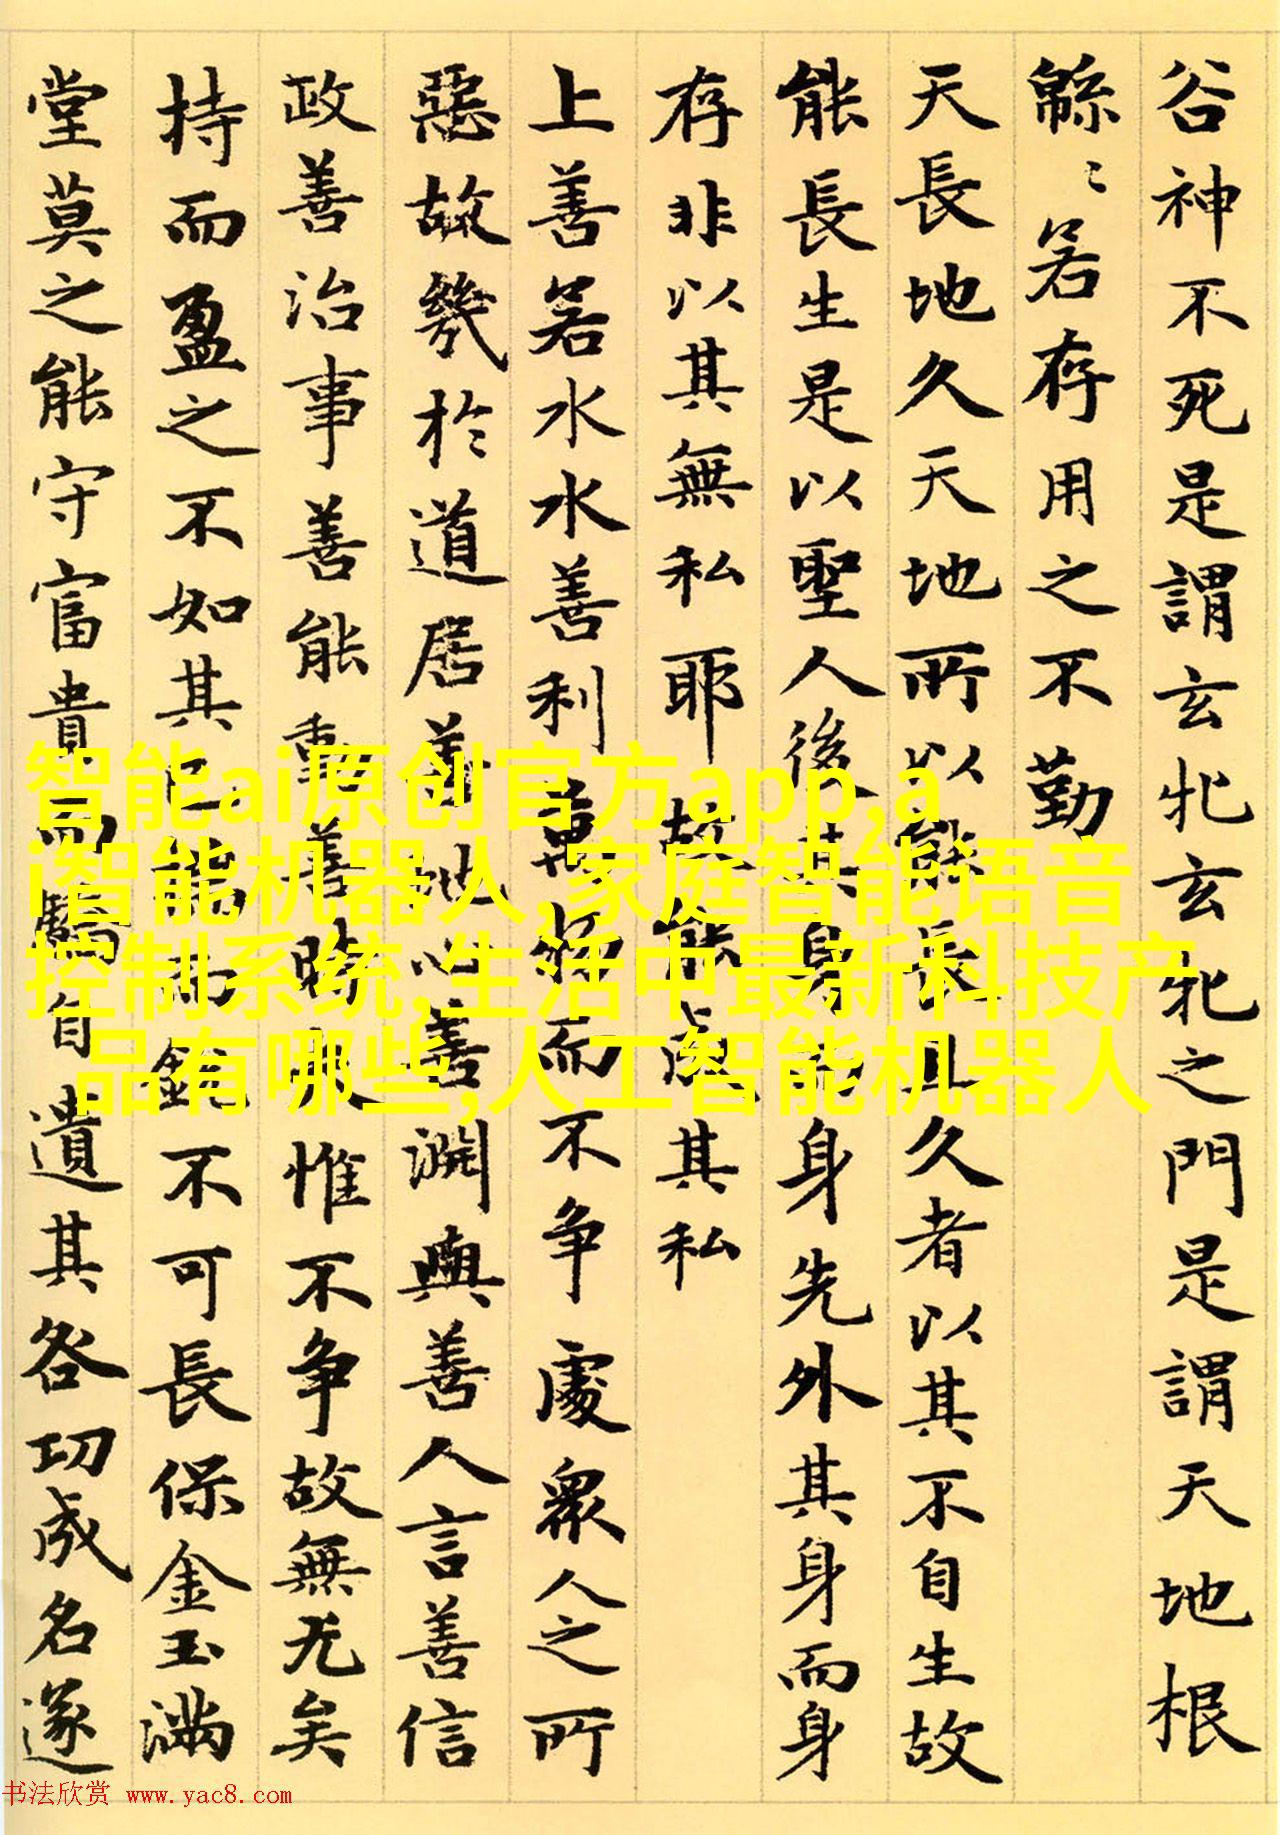 谷神不死是謂玄牝玄牝之門是謂天地根
緜〻若存用之不勤
天長地久天地所以能長且久者以其不自生故
能長生是以聖人後其身而身先外其身而身
存非以其無私耶故能成其私
上善若水水善利萬物而不争處衆人之所
惡故幾於道居善地心善淵與善人言善信
政善治事善能動善時夫惟不争故無尤矣
持而盈之不如其已而銳不可長保金玉滿
堂莫之能守富貴而驕自遺其咎功成名遂
智能ai原创官方app,a
i智能机器人,家庭智能语音
控制系统,生活中最新科技产
品有哪些,人工智能机器人
书法欣赏 www.yac8.com